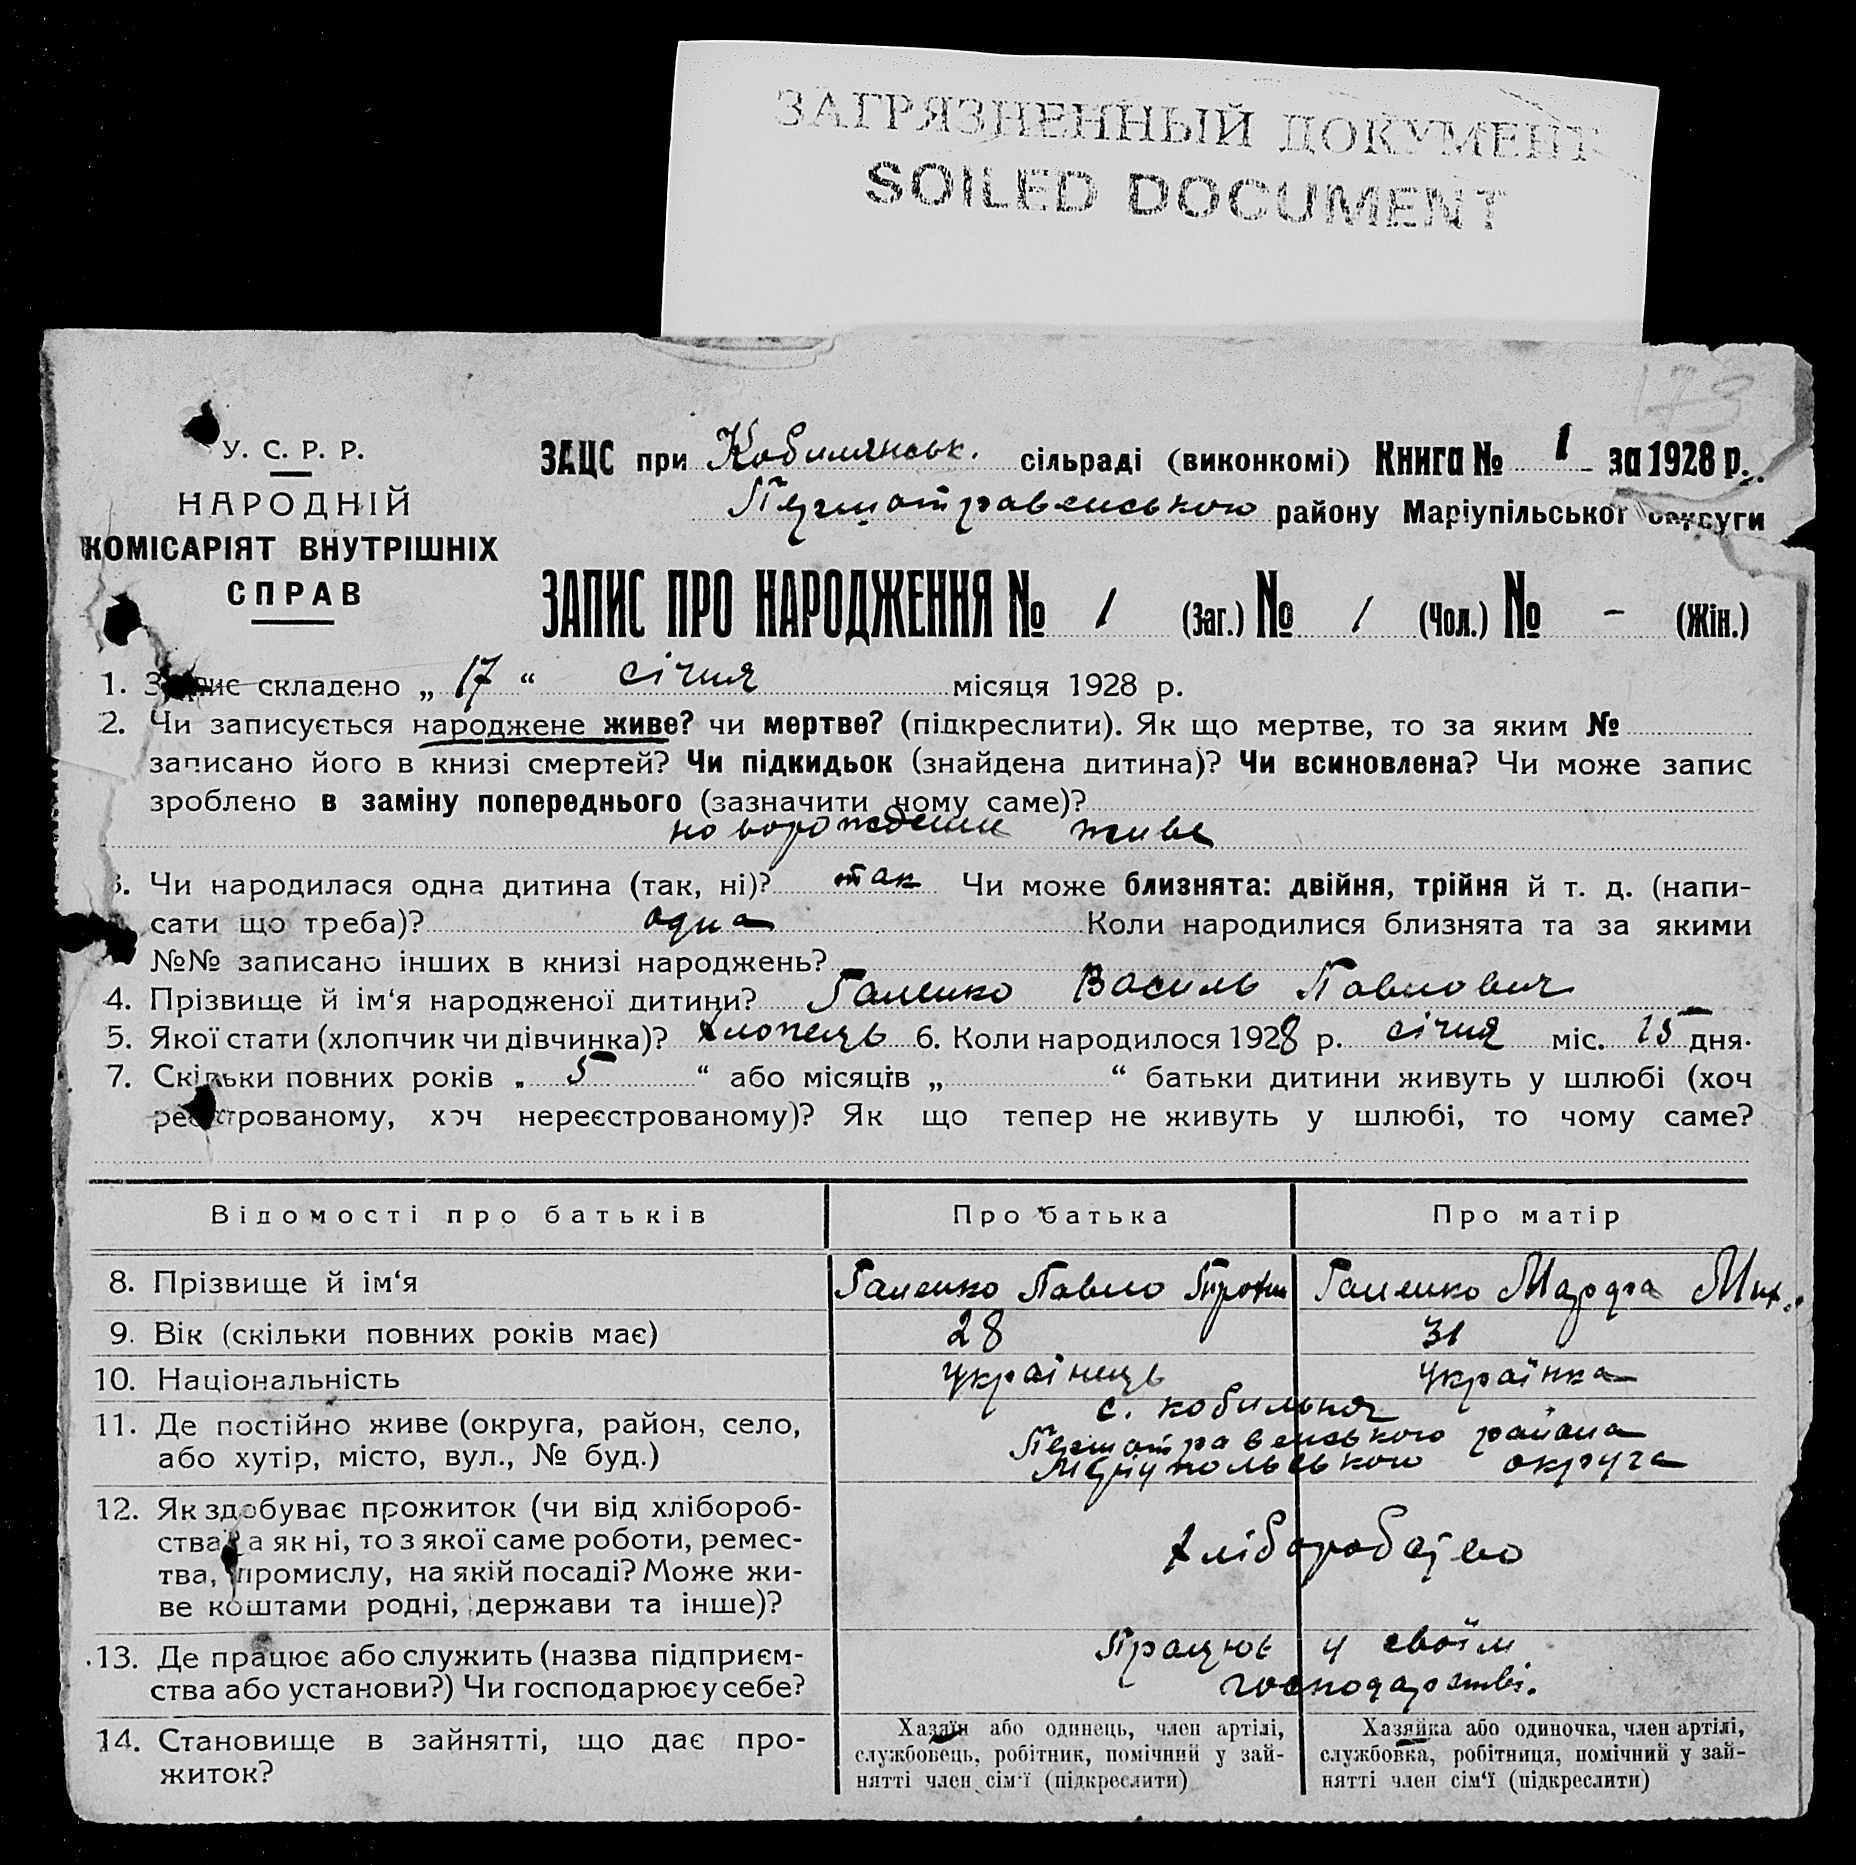 ЗАГРЯЗНЕННЫЙ ДОКУМЕНТ
SOILED DOCUMENT
173
У. С. Р. Р.
НАРОДНІЙ
КОМІСАРІЯТ ВНУТРІШНІХ
СПРАВ
ЗАЦС при Кобилянськ. сільраді (виконкомі) Книга № 1 за 1928 р.
Першотравенського району Маріупільської округи
ЗАПИС ПРО НАРОДЖЕННЯ № 1 (Заг.) № 1 (Чол.) № - (Жін.)
1. Запис складено „ 17 “ січня місяця 1928 р.
2. Чи записується народжене живе? чи мертве? (підкреслити). Як що мертве, то за яким №
записано його в книзі смертей? Чи підкидьок (знайдена дитина)? Чи всиновлена? Чи може запис
зроблено в заміну попереднього (зазначити чому саме)?
живе
3. Чи народилася одна дитина (так, ні)? так Чи може близнята: двійня, трійня й т. д. (напи-
сати що треба)? одна Коли народилися близнята та за якими
№№ записано інших в книзі народжень?
4. Прізвище й ім‘я народженої дитини? Галенко Василь Павлович
5. Якої стати (хлопчик чи дівчинка)? хлопець 6. Коли народилося 1928 р. січня міс. 15 дня.
7. Скільки повних років „ 5 “ або місяців „ “ батьки дитини живуть у шлюбі (хоч
реєстрованому, хоч нереєстрованому)? Як що тепер не живуть у шлюбі, то чому саме?
Відомості про батьків Про батька Про матір
8. Прізвище й ім‘я Галенко Павло Трохим Галенко Мих.
9. Вік (скільки повних років має) 28 31
10. Національність українець українка
11. Де постійно живе (округа, район, село,
або хутір, місто, вул., № буд.)
с. кобильня
Першотравенського района
округа
12. Як здобуває прожиток (чи від хлібороб-
ства? а як ні, то з якої саме роботи, ремес-
тва, промислу, на якій посаді? Може жи-
ве коштами родні, держави та інше)?
хліборобство
13. Де працює або служить (назва підприєм-
ства або установи?) Чи господарює у себе?
Працює у своїм
господарстві.
14. Становище в зайнятті, що дає про-
житок?
Хазяїн або одинець, член артілі,
службовець, робітник, помічний у зай-
нятті член сім‘ї (підкреслити)
Хазяйка або одиночка, член артілі,
службовка, робітниця, помічний у зай-
нятті член сім‘ї (підкреслити)